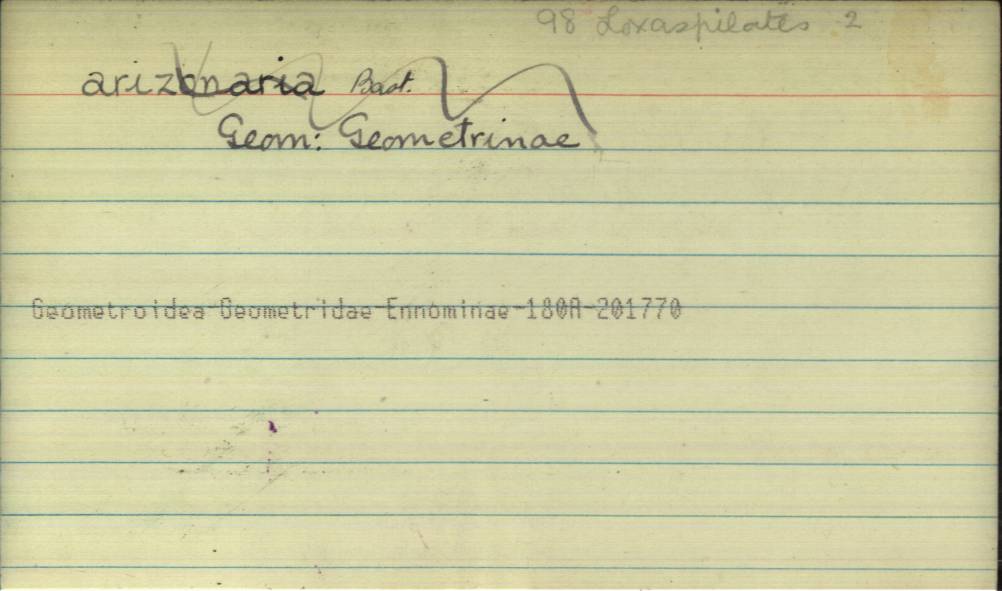 98 Loxaspilates 2
arizonaria Bast.
Geom: Geometrinae
Geometroidea-Geometridae-Ennominae-180A-201770